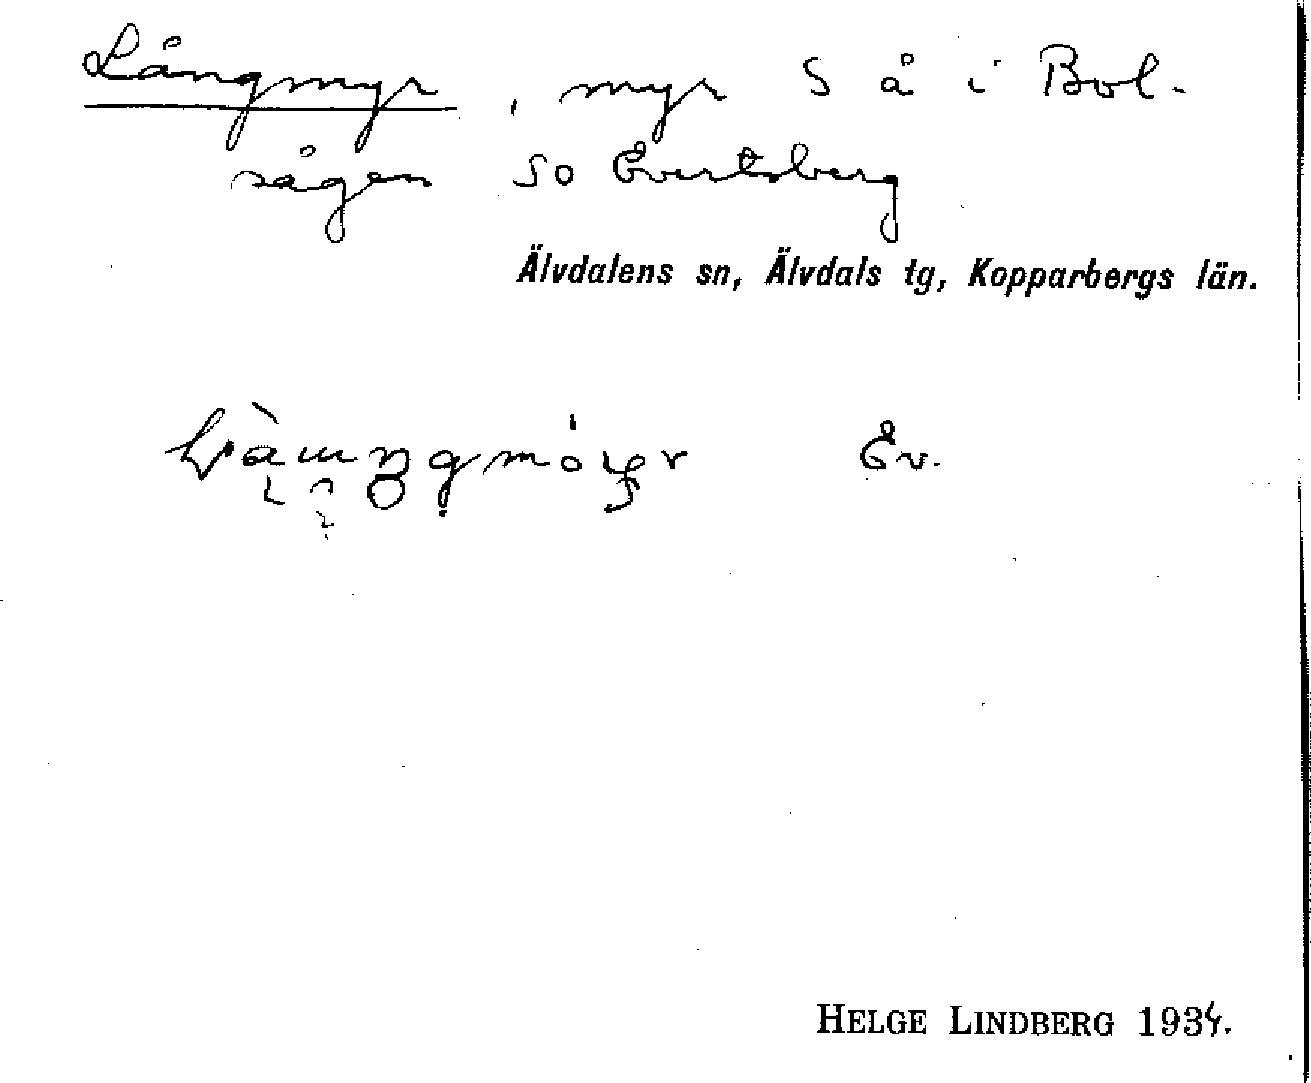 Långmyr, myr S å i Bol-
sågen SO Evertsberg
Älvdalens sn, Älvdals tg, Kopparbergs län.
Ev.
HELGE LINDBERG 1934.